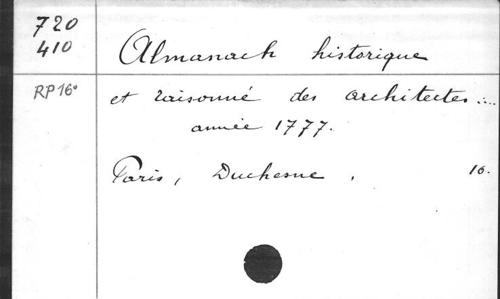 720
410
Almanach historique
RP 16°
et raisonné des architectes.....
année 1777.
Paris, Duchesne. 16.